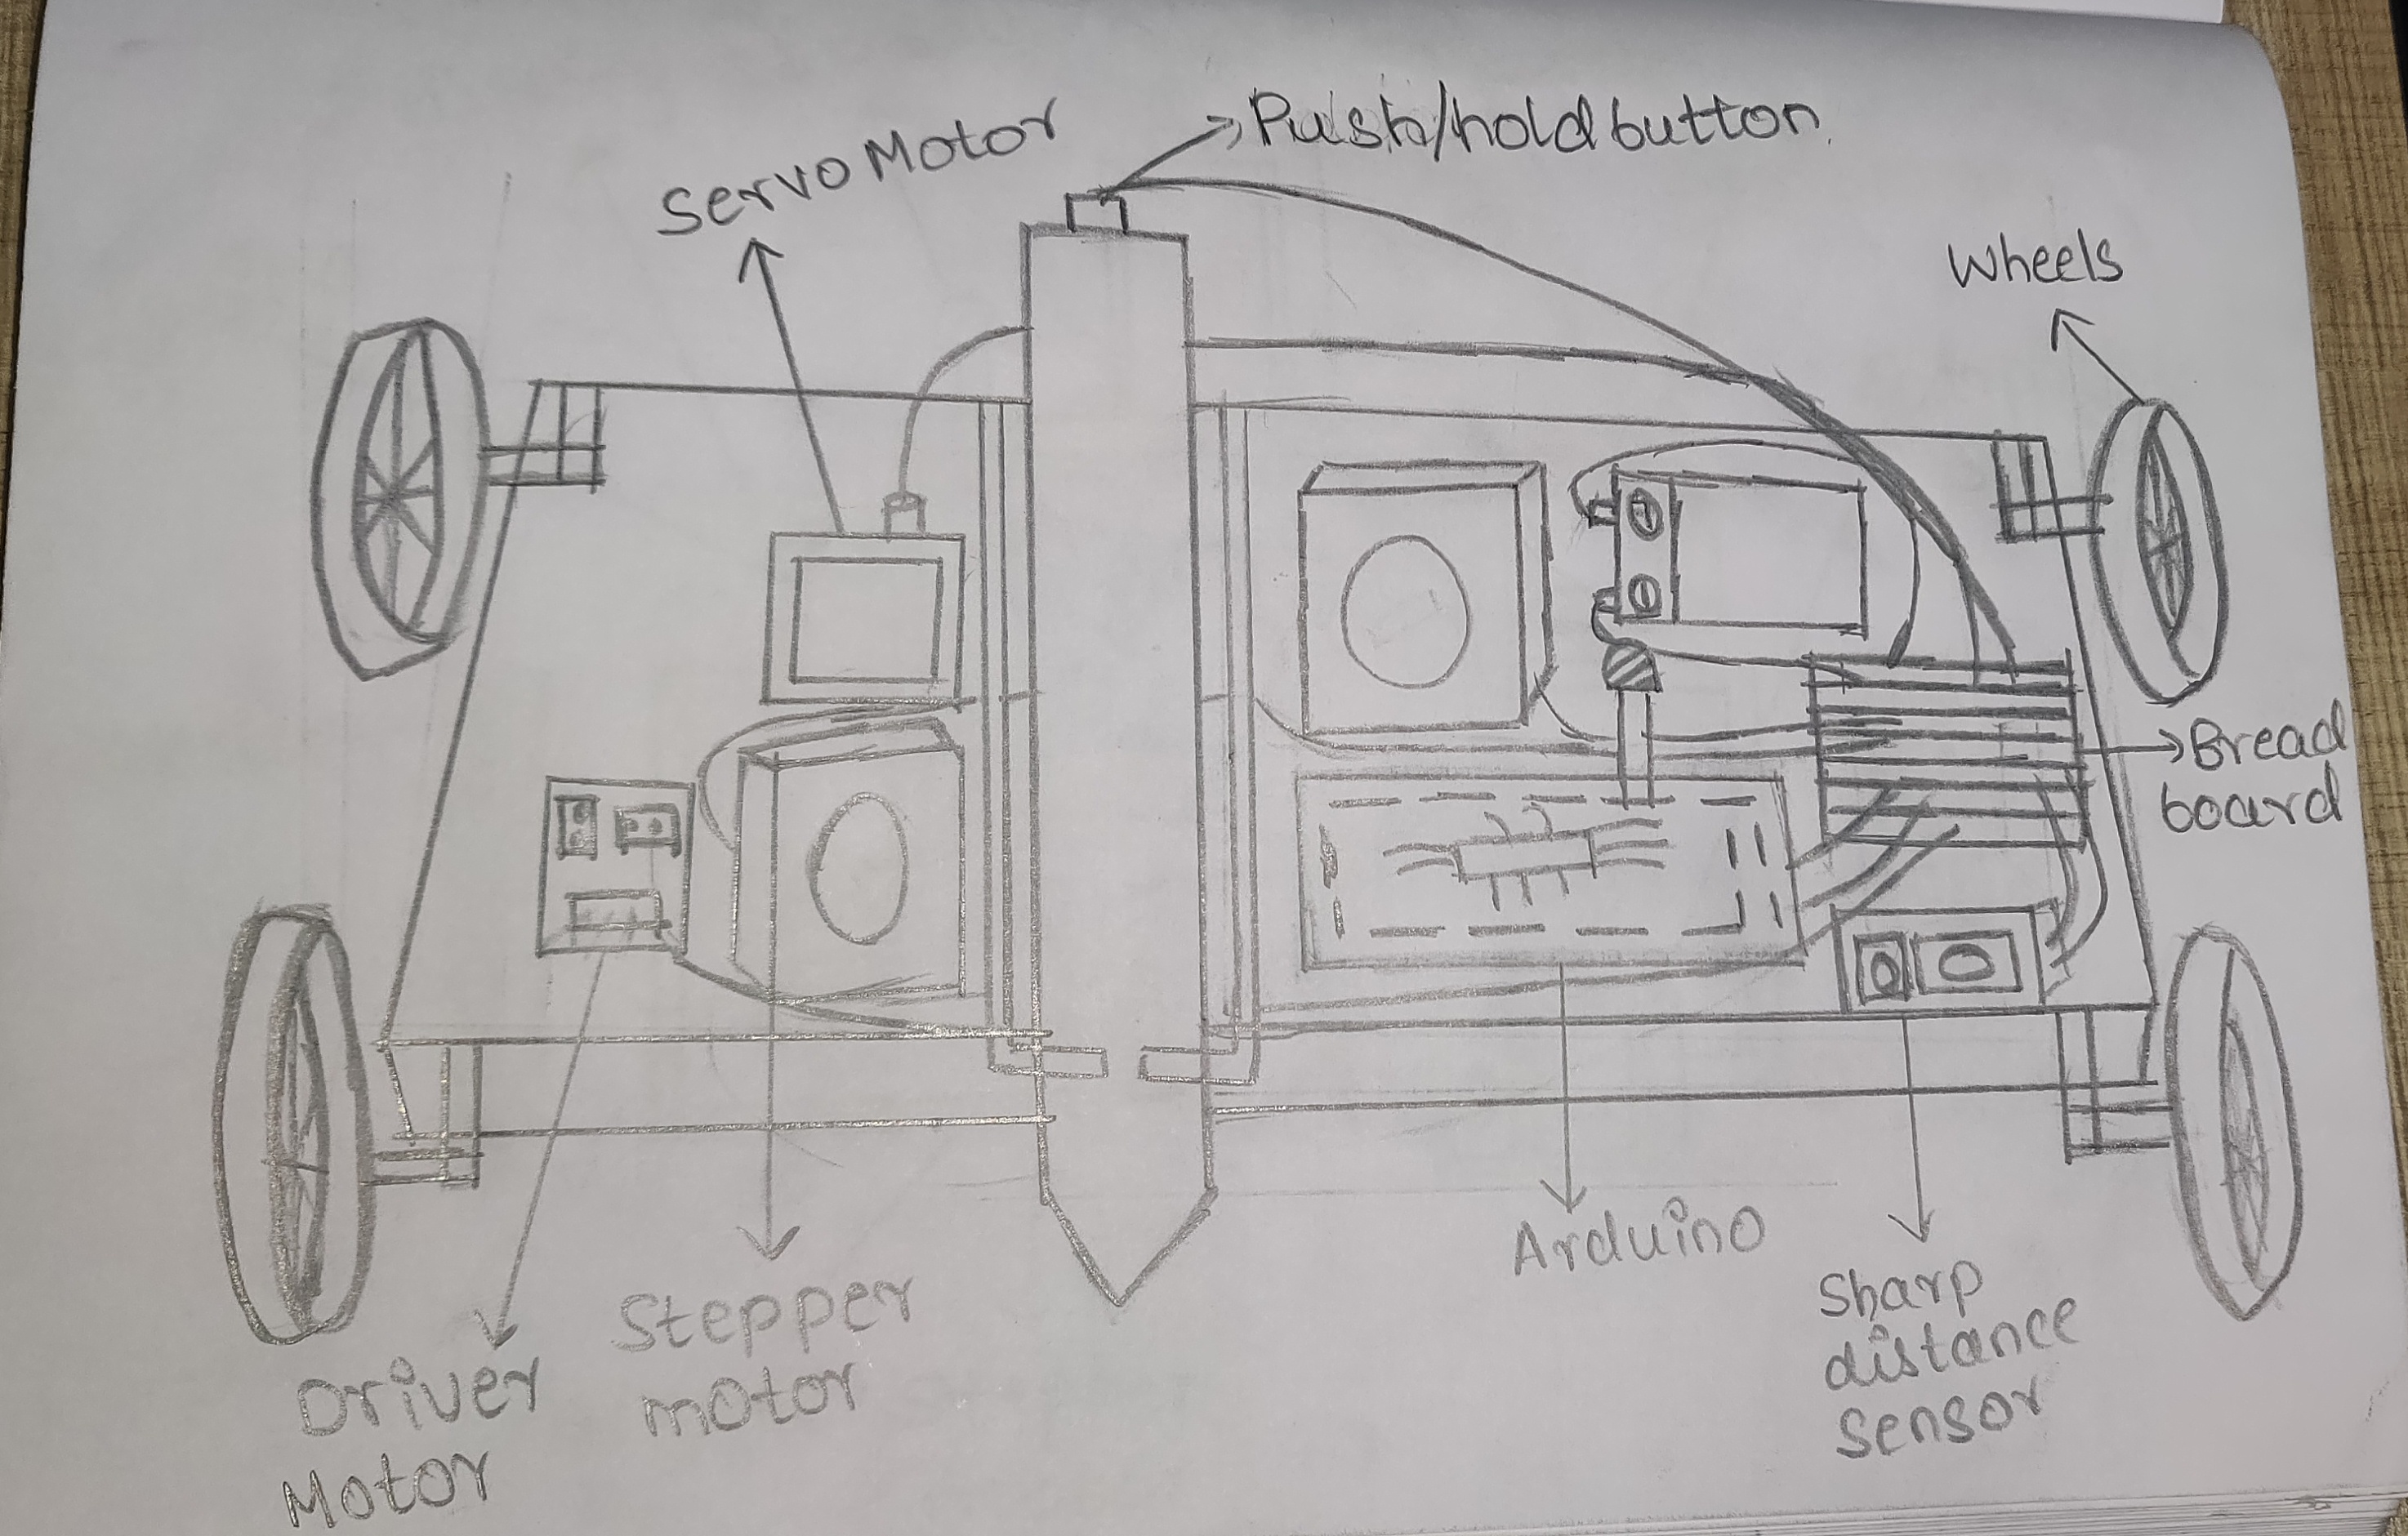 Push/hold button.
Servo Motor
Wheels
Bread
board
Arduino
Sharp
distance
sensor
Stepper
motor
Driver
Motor